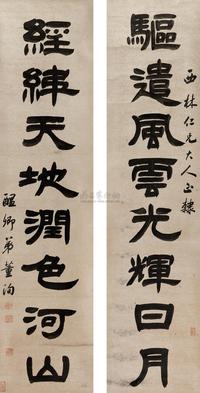 驅遣風雲光輝日月
西林仁兄大人正隸
經緯天地潤色河山
醖卿弟董洵